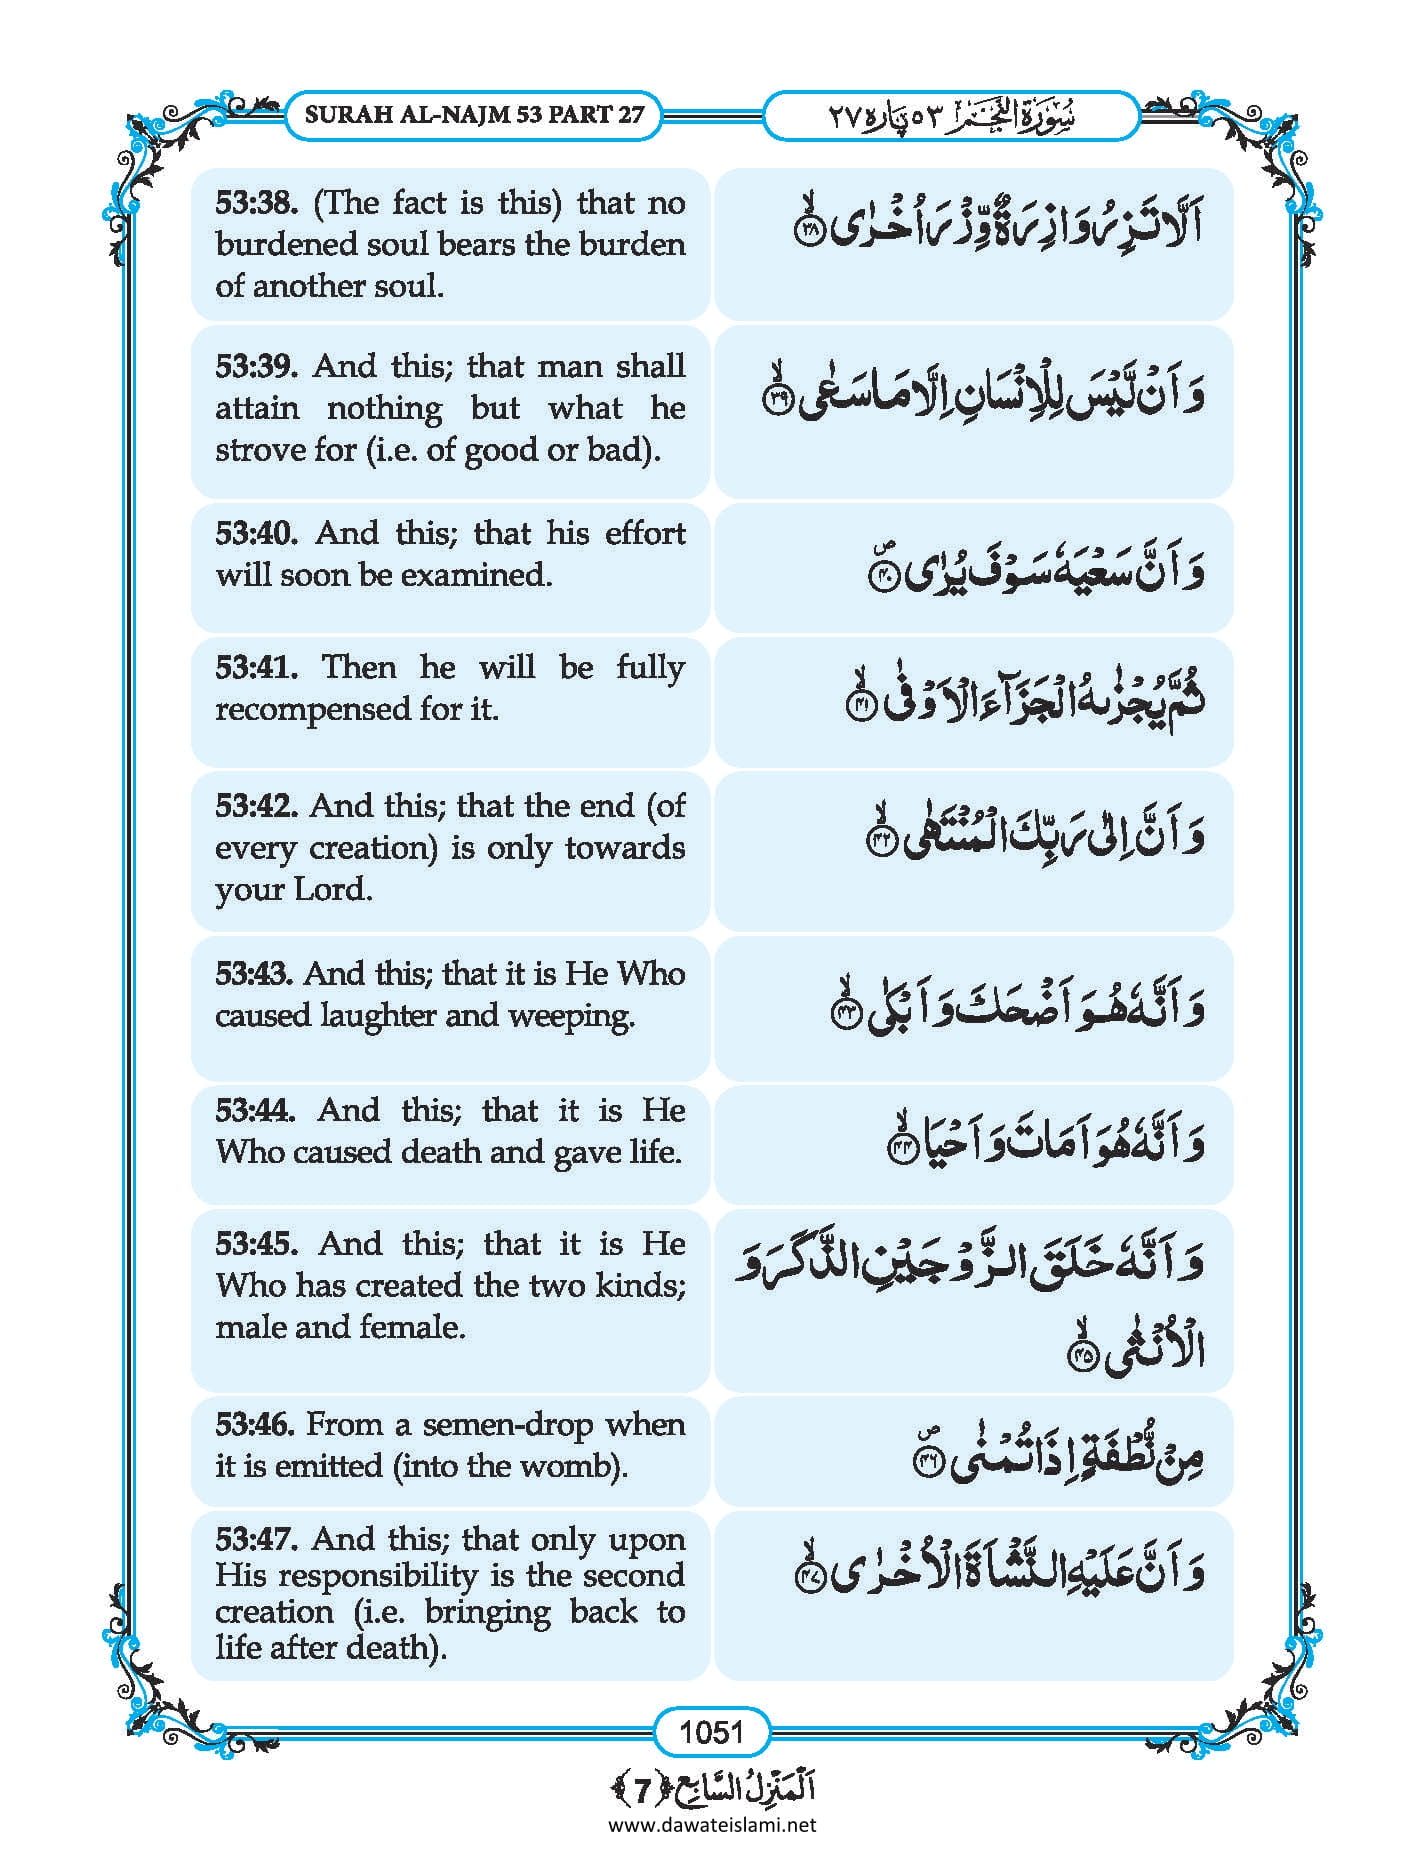 SURAH AL-NAJM 53 PART 27
سُوْرَةُ النَّجْم ٥٣ پارہ ٢٧
53:38. (The fact is this) that no
burdened soul bears the burden
of another soul.
اَلَّا تَزِرُ وَازِرَةٌ وِّزْرَ اُخْرٰى ۙ﴿۳۸﴾
53:39. And this; that man shall
attain nothing but what he
strove for (i.e. of good or bad).
وَ اَنْ لَّیْسَ لِلْاِنْسَانِ اِلَّا مَا سَعٰى ۙ﴿۳۹﴾
53:40. And this; that his effort
will soon be examined.
وَ اَنَّ سَعْیَهٗ سَوْفَ یُرٰى ۪﴿۴۰﴾
53:41. Then he will be fully
recompensed for it.
ثُمَّ یُجْزٰىهُ الْجَزَآءَ الْاَوْفٰى ۙ﴿۴۱﴾
53:42. And this; that the end (of
every creation) is only towards
your Lord.
وَ اَنَّ اِلٰى رَبِّكَ الْمُنْتَهٰى ۙ﴿۴۲﴾
53:43. And this; that it is He Who
caused laughter and weeping.
وَ اَنَّهٗ هُوَ اَضْحَكَ وَ اَبْكٰى ۙ﴿۴۳﴾
53:44. And this; that it is He
Who caused death and gave life.
وَ اَنَّهٗ هُوَ اَمَاتَ وَ اَحْیَا ۙ﴿۴۴﴾
53:45. And this; that it is He
Who has created the two kinds;
male and female.
وَ اَنَّهٗ خَلَقَ الزَّوْجَیْنِ الذَّكَرَ وَ
الْاُنْثٰى ۙ﴿۴۵﴾
53:46. From a semen-drop when
it is emitted (into the womb).
مِنْ نُّطْفَةٍ اِذَا تُمْنٰى ۪﴿۴۶﴾
53:47. And this; that only upon
His responsibility is the second
creation (i.e. bringing back to
life after death).
وَ اَنَّ عَلَیْهِ النَّشْاَةَ الْاُخْرٰى ۙ﴿۴۷﴾
1051
اَلْمَنْزِلُ السَّابِع ﴿7﴾
www.dawateislami.net